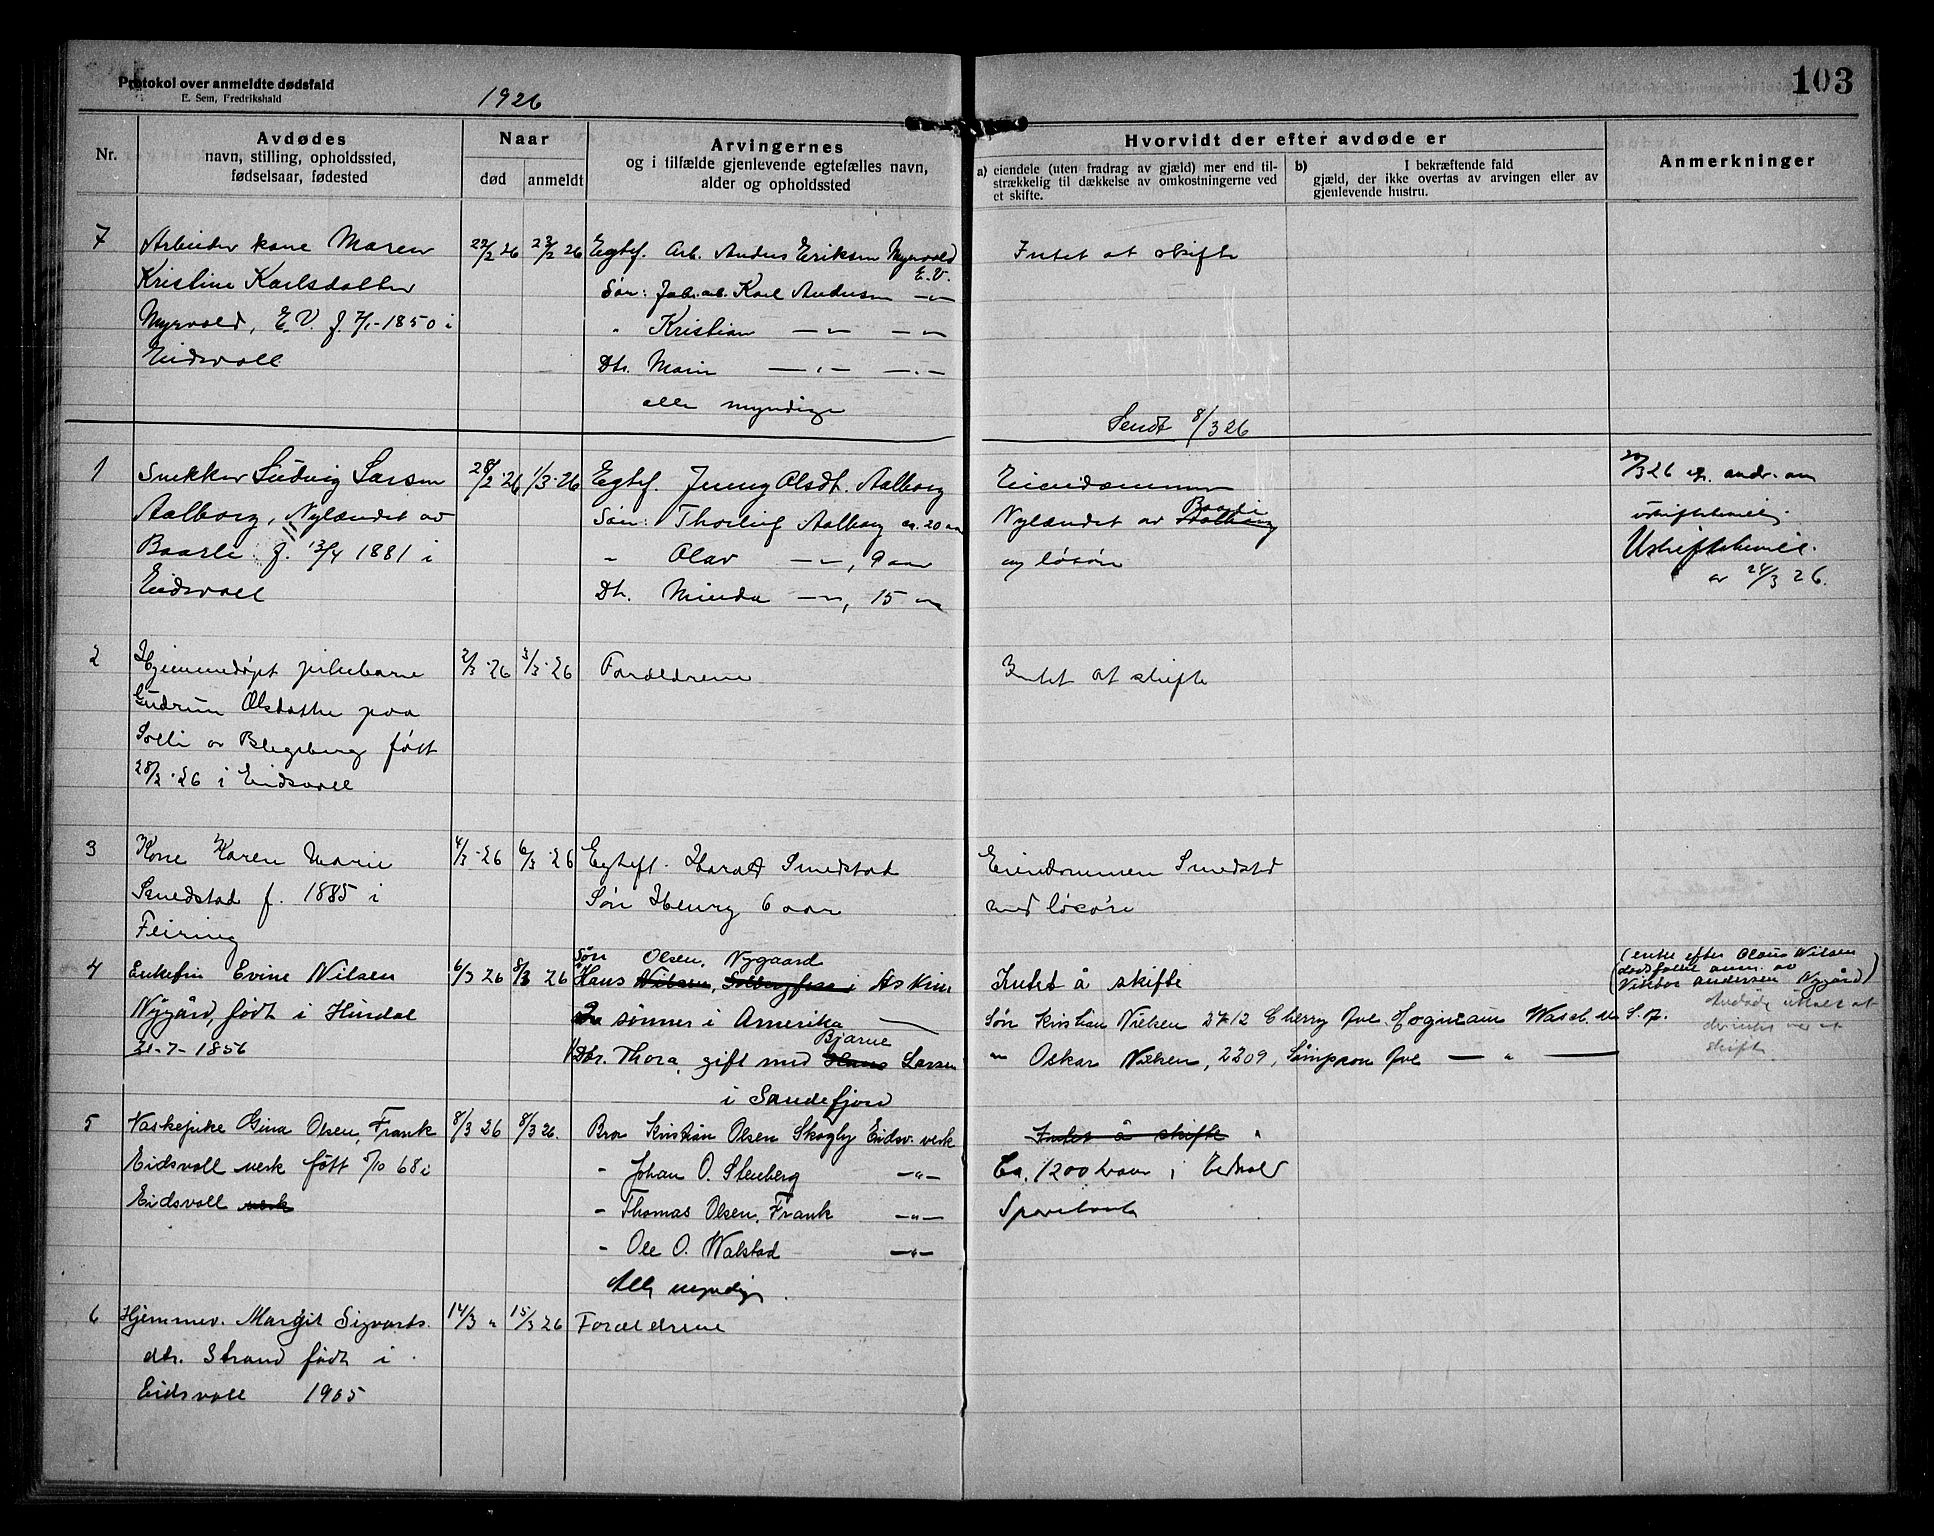 Protokol over anmeldte dødsfald
E. Sem, Fredrikshald
1926
103
Nr.
Avdødes
navn, stilling, opholdssted,
fødselsaar, fødested
Naar
død
anmeldt
Arvingernes
og i tilfælde gjenlevende egtefælles navn,
alder og opholdssted
Hvorvidt der efter avdøde er
a) eiendele (uten fradrag av gjæld) mer end til-
strækkelig til dækkelse av omkostningerne ved
et skifte.
b) I bekræftende fald
gjæld, der ikke overtas av arvingen eller av
gjenlevende hustru.
Anmerkninger
7
Arbeider kone Maren
Kristine Karlsdatter
Myrvold, E.V. f. 7/1-1850 i
Eidsvoll
22/2 26
23/2 26
Egtef. Arb. Anders Eriksen Myrvold
E.V.
Søn: Karl Andersen —"—
" Kristian —"— —"—
Dtr. Marie —"— —"—
alle myndige
Intet at skifte
Sendt 8/3 26
1
Snekker Ludvig Larsen
Aalborg, Nylændet av
Baarli f. 13/4 1881 i
Eidsvoll
28/2-26
1/3-26
Egtef. Jenny Olsdt. Aalborg
Søn: Thorleif Aalborg ca. 20 aar
" Olav —"—, 9 aar
Dt. Minda —"—, 15 aar
Eiendommen
Baarli
Nylændet av Aalborg
og løsøre
20/3 26 andr. om
uskiftebevilg.
Uskiftebevil.
av 24/3 26.
2
Hjemmedøpt pikebarn
Gudrun Olsdatter paa
Solli av Blegsberg født
28/2-26 i Eidsvoll
2/3-26
3/3-26
Forældrene
Intet at skifte
3
Kone Karen Marie
Smedstad f. 1885 i
Feiring
4/3-26
6/3-26
Egtef. Harald Smedstad
Søn Henry 6 aar
Eiendommen Smedstad
med løsøre
4
Enkefru Evine Nilsen
Nygård, født i Hurdal
21-7-1856
6/3 26
8/3 26
Søn Olsen, Nygaard
Hans Nilsen, i Askim
2 sønner i Amerika
Bjarne
Dtr. Thora, gift med Hans Larsen
i Sandefjord
Intet å skifte
Søn Kristian Nielsen 2712 Cherry Ave. Hoquiam Wash.
" Oskar Nielsen, 2209, Simpson Ave — " —
(enke efter Olaus Nilsen
dødsfallet anm. av
Viktor Andersen Nygård)
skifte.
5
Vaskepike Gina Olsen, Frank
Eidsvoll verk født 5/10 68 i
Eidsvoll verk
8/3 26
8/3 26.
Bror Kristian Olsen Skogby Eidsv. verk
" Johan O. Stenberg —"—
" Thomas Olsen, Frank —"—
" Ole O. Walstad —"—
Alle myndig.
Intet å skifte "
Ca. 1200 kroner i Eidsvold
Sparebank
6
Hjemmev. Margit Sigvarts
dtr. Strand født i
Eidsvoll 1905
14/3 "
15/3 26
Forældrene